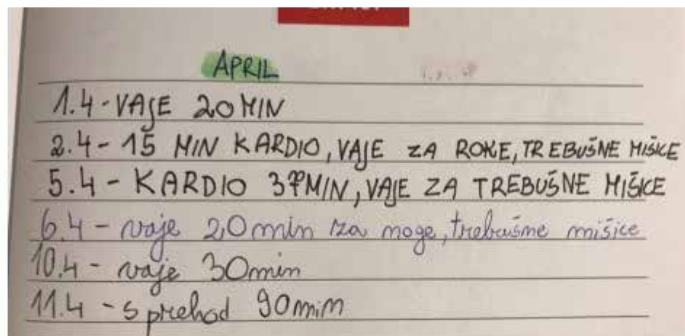 APRIL
1.4 - VAJE 20 MIN
2.4 - 15 MIN KARDIO, VAJE ZA ROKE, TREBUŠNE MIŠICE
5.4 - KARDIO 37MIN, VAJE ZA TREBUŠNE MIŠICE
6.4 - vaje 20min za noge, trebušne mišice
10.4 - vaje 30min
11.4 - sprehod 90min